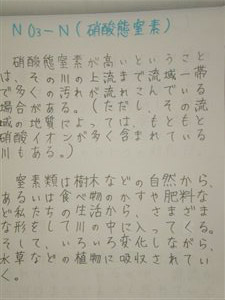 NO₃-N(硝酸態窒素)
硝酸態窒素が高いということ
は、その川の上流まで流域一帯
で多くの汚れが流れこんでいる
場合がある。(ただし、その流
域の地質によっては、もともと
硝酸イオンが多く含まれている
川もある。)
窒素類は樹木などの自然から、
あるいは食べ物のかすや肥料な
ど私たちの生活から、さまざま
な形をして川の中に入ってくる。
そして、いろいろ変化しながら、
水草などの植物に吸収されてい
く。